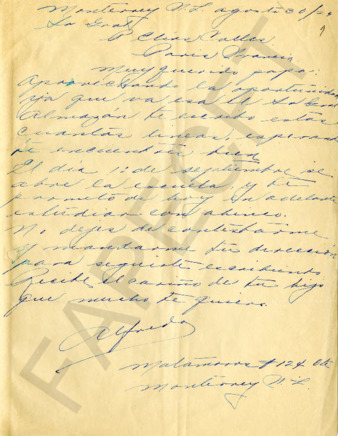 Monterrey N.L. agosto 30/29
Sr Gral
P. Elias Calles
Paris Francia
Muy querido papa:
Aprovechando la oportunidad
que va esa el Sr Gral
Almazan te escribo estas
cuantas lineas, esperando
te encuentres bien
El dia 1º de septiembre se
abre la escuela y te
prometo de hoy en adelante
estudiar con ahinco.
No dejes de contestarme
y mandarme tu direccion
para seguirte escribiendo
Recibe el cariño de tu hijo
que mucho te quiere.
Alfredo
Matamoros # 124 Ote
Monterrey N.L.
FAPECFT